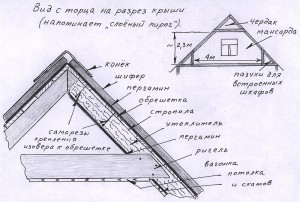 Вид с торца на разрез крыши
(напоминает „слоёный пирог").
чердак
мансарда
~ 2,3м
4м
пазухи для
встроенных
шкафов
конёк
шифер
пергамин
обрешетка
стропила
утеплитель
пергамин
ригель
вагонка
потолка
и скатов
саморезы
крепления
изовера к обрешетке